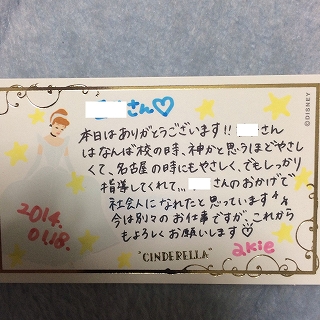 さん♡
本日はありがとうございます!! さん
はなんば校の時、神かと思うほどやさし
くて、名古屋の時にもやさしく、でもしっかり
指導してくれて... さんのおかげで
社会人になれたと思っています
今は別々のお仕事ですが、これから
もよろしくお願いします♡
akie
2014.
01.18.
"CINDERELLA"
©DISNEY